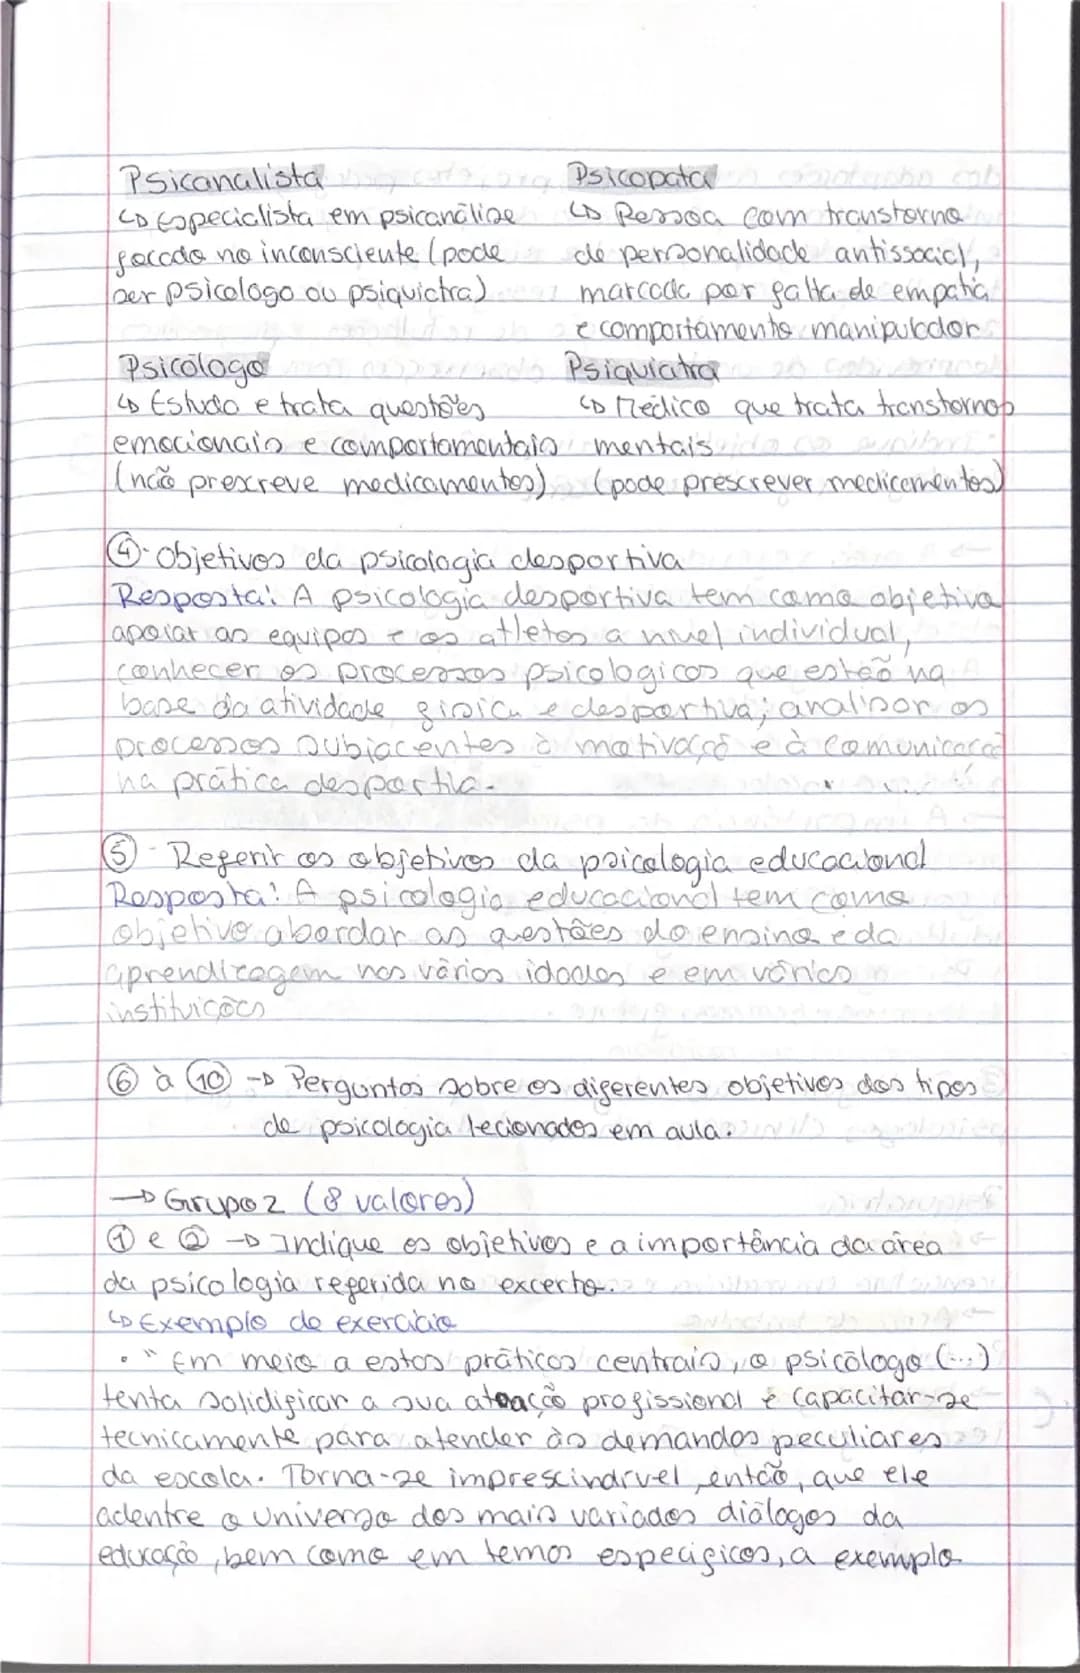 Psicanalista
↳ Especialista em psicanálise
focado no inconsciente (pode
ser psicologo ou psiquiatra)
Psicopata
↳ Pessoa com transtorno
de personalidade antissocial,
marcada por falta de empatia
e comportamento manipulador
Psicólogo
↳ Estuda e trata questões
emocionais e comportamentais
(não prescreve medicamentos)
Psiquiatra
↳ Médico que trata transtornos
mentais
(pode prescrever medicamentos)
④- Objetivos da psicologia desportiva
Resposta: A psicologia desportiva tem como objetivo
apoiar as equipas e os atletas a nível individual,
conhecer os processos psicologicos que estão na
base da atividade fisica e desportiva; analisar os
processos subjacentes à motivação e à comunicação
na prática desportiva.
⑤ - Referir os objetivos da psicologia educacional
Resposta: A psicologia educacional tem como
objetivo abordar as questões do ensino e da
aprendizagem nas várias idades e em várias
instituições
⑥ à ⑩ → Perguntas sobre os diferentes objetivos dos tipos
de psicologia lecionados em aula.
→ Grupo 2 (8 valores)
① e ② → Indique os objetivos e a importância da área
da psicologia referida no excerto.
↳ Exemplo de exercício
• " Em meio a estas práticas centrais, o psicólogo (...)
tenta solidificar a sua atuação profissional e capacitar-se
tecnicamente para atender às demandas peculiares
da escola. Torna-se imprescindível, então, que ele
adentre o universo dos mais variados diálogos da
educação, bem como em temas especificos, a exemplo